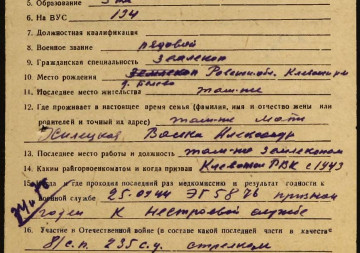 5. Образование 3 кл
6. На ВУС 134
7. Должностная квалификация
8. Военное звание рядовой
9. Гражданская специальность землекоп
10. Место рождения Ровенск. обл. Клеванский
11. Последнее место жительства там-же
12. Где проживает в настоящее время семья (фамилия, имя и отчество жены или
родителей и точный адрес) там-же мать
13. Последнее место работы и должность там-же землекопом
14. Каким райгорвоенкоматом и когда призван Клеванск РВК с 1943
15. Когда и где проходил раз медкомиссию и результат годности к
военной службе 25.04.44 ЭГ 5876 признан
годен к нестроевой службе
16. Участие в Отечественной войне (в составе какой последней части и качестве)
8/с.п. 235 с.д. стрелком